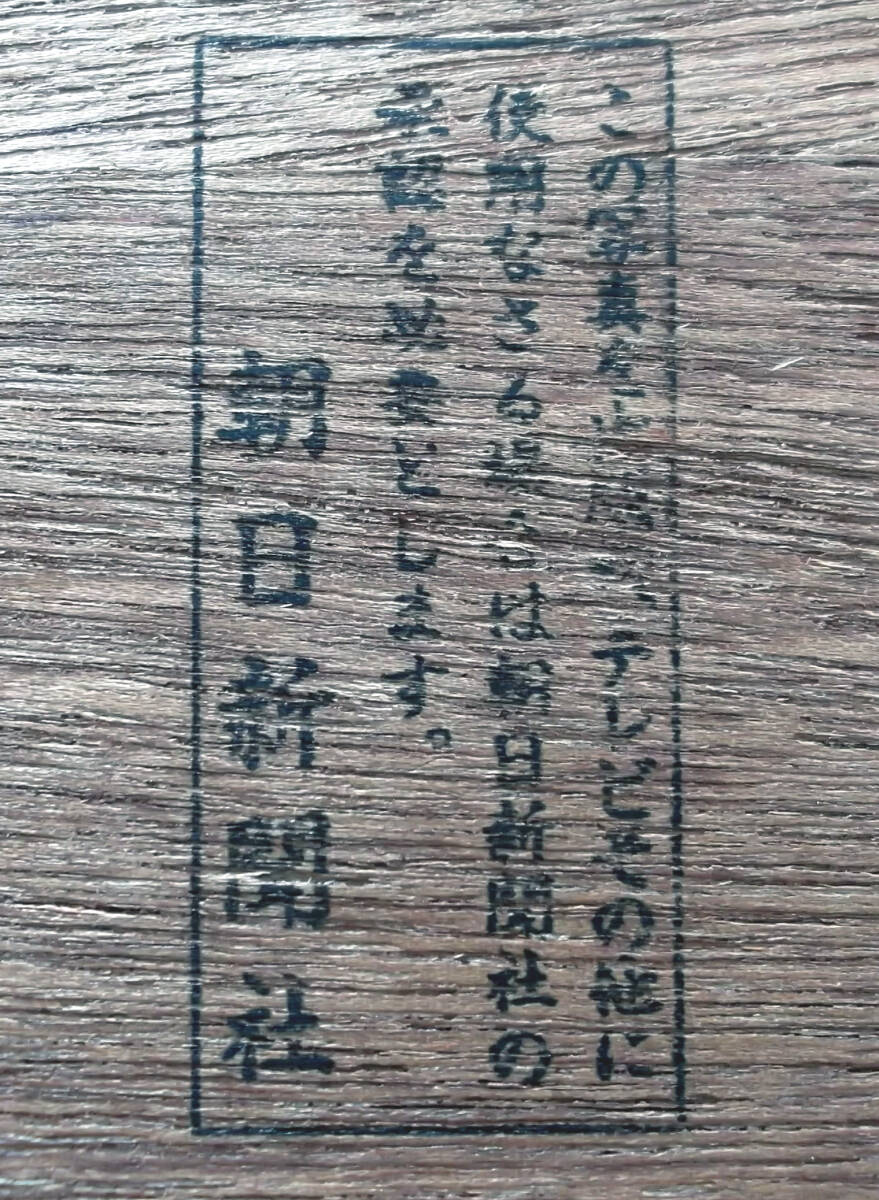 この写真を出版、テレビその他に
使用なさる場合は朝日新聞社の
承認を必要とします。
朝日新聞社